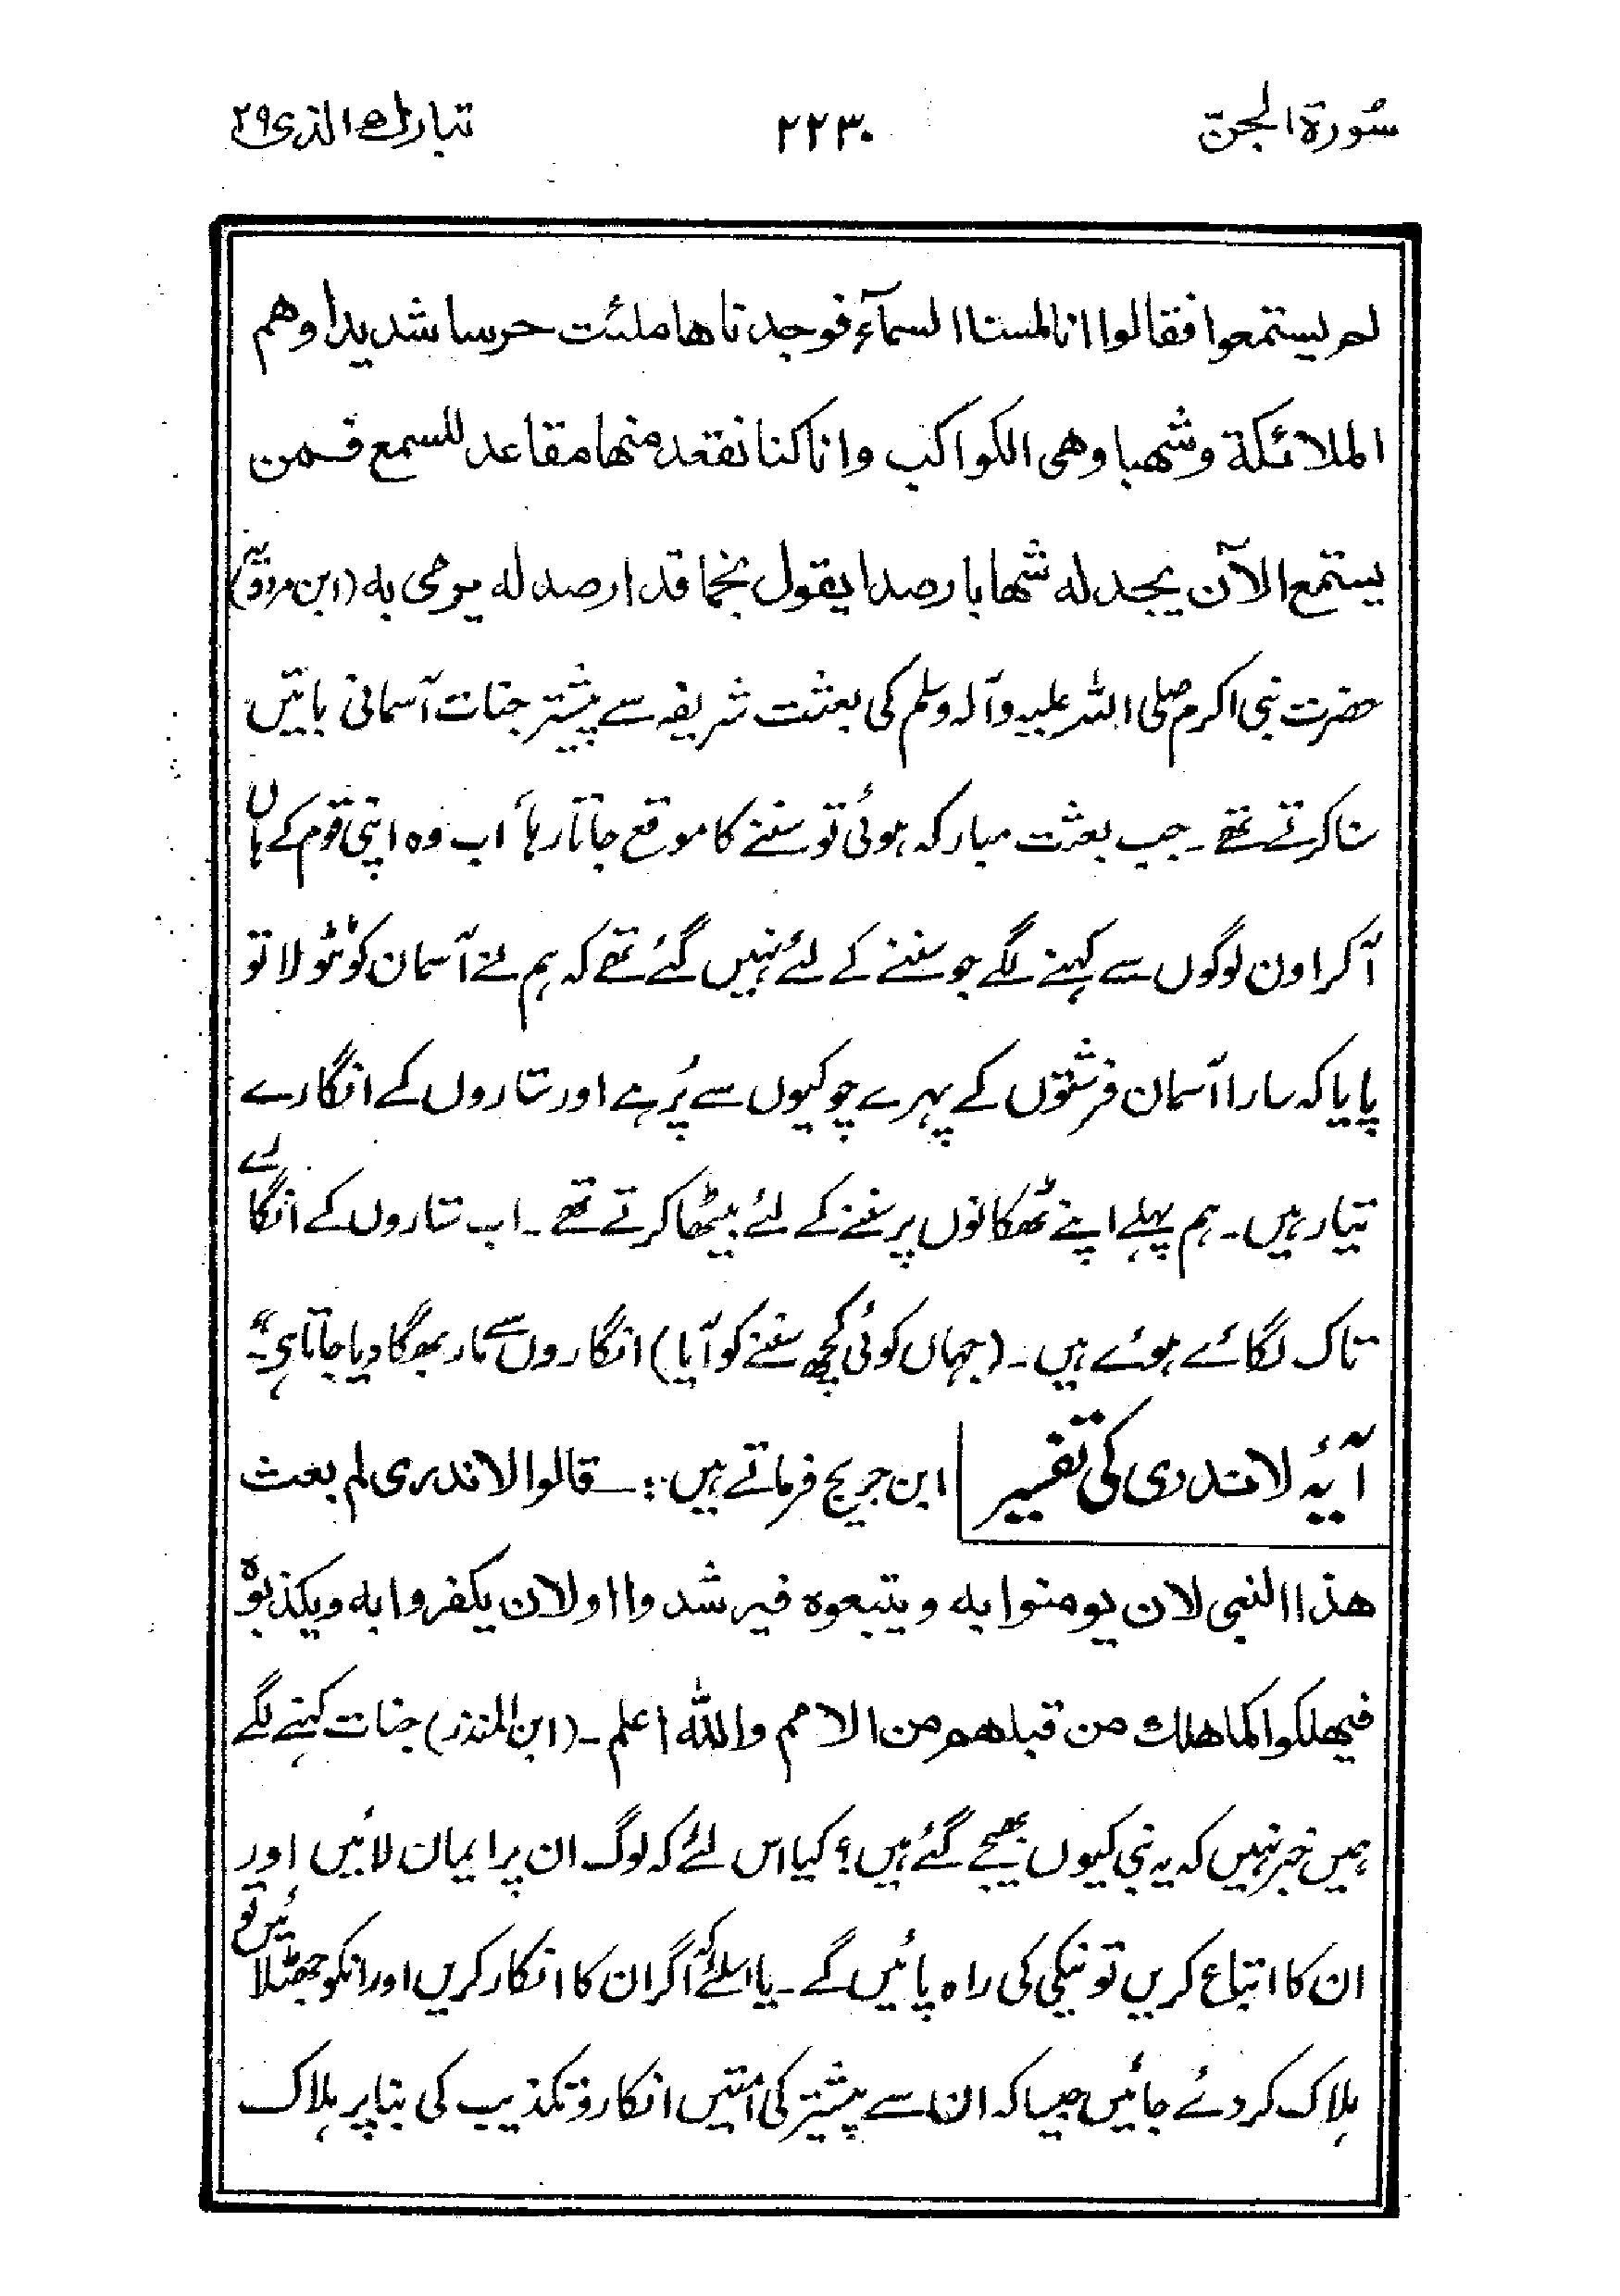 سُورة الجن ۲۲۳۰ تبارك الذی ۲۹
لم يستمعوا فقالوا انا لمسنا السمآء فوجدناها ملئت حرسا شديدا وهم
الملائكة وشهبا وهى الكواكب وانا كنا نقعد منها مقاعد للسمع فمن
يستمع الآن يجد له شهابا رصدا يقول نجما قد ارصد له يرمى به (ابن مردویہ)
حضرت نبی اکرم صلی اللہ علیہ وآلہ وسلم کی بعثت شریفہ سے پیشتر جنات آسمانی باتیں
سنا کرتے تھے۔ جب بعثت مبارکہ ہوئی تو سننے کا موقع جاتا رہا اب وہ اپنی قوم کے ہاں
آکر اون لوگوں سے کہنے لگے جو سننے کے لئے نہیں گئے تھے کہ ہم نے آسمان کو ٹٹولا تو
پایا کہ سارا آسمان فرشتوں کے پہرے چوکیوں سے پُر ہے اور ستاروں کے انگارے
تیار ہیں۔ ہم پہلے اپنے ٹھکانوں پر سننے کے لئے بیٹھا کرتے تھے۔ اب ستاروں کے انگارے
تاک لگائے ہوئے ہیں۔ (جہاں کوئی کچھ سننے کو آیا) انگاروں سے مار بھگا دیا جاتا ہی۔"
آیۂ لاندری کی تفسیر ابن جریج فرماتے ہیں:۔ قالوا لاندری لم بعث
هذا النبی لان یومنوا به و یتبعوه فیرشدوا او لان یکفروا به ویکذبوه
فیهلکوا کما هلك من قبلهم من الامم والله اعلم۔ (ابن المنذر) جنات کہنے لگے
ہمیں خبر نہیں کہ یہ نبی کیوں بھیجے گئے ہیں؟ کیا اس لئے کہ لوگ ان پر ایمان لائیں اور
ان کا اتباع کریں تو نیکی کی راہ پائیں گے۔ یا اسلئے کہ اگر ان کا انکار کریں اور انکو جھٹلائیں تو
ہلاک کردئے جائیں جیسا کہ ان سے پیشتر کی امتیں انکار و تکذیب کی بنا پر ہلاک